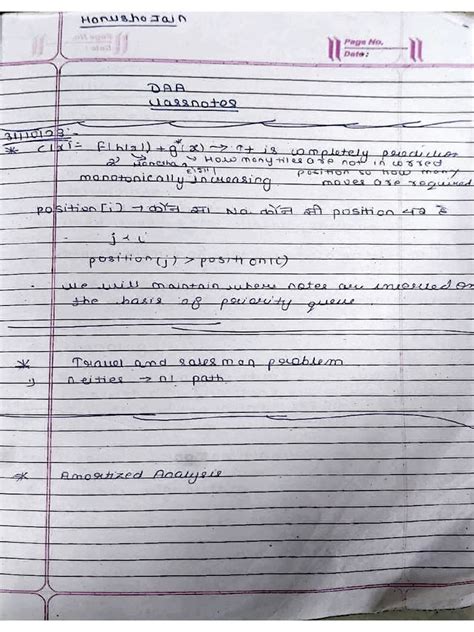 Page No.
Date:
DAA
classnotes
31/10/23:-
* c(x) = f(h(x)) + g*(x) → it is completely prediction
How many tiles are not in correct
position so how many
monotonically increasing moves are required
position(i) → कौन सा No. कौन सी position पर है
j < i
position(j) > position(i)
we will maintain where notes are inserted on
the basis of priority queue
* Travel and sales man problem
n cities → n! path
* Amortized Analysis